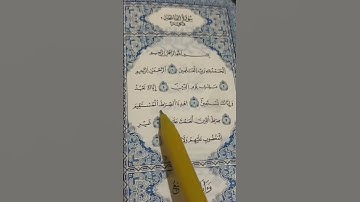 سورة الفاتحة
بسم الله الرحمن الرحيم
الحمد لله رب العالمين الرحمن الرحيم
مالك يوم الدين إياك نعبد
وإياك نستعين اهدنا الصراط المستقيم
صراط الذين أنعمت عليهم غير
المغضوب عليهم ولا